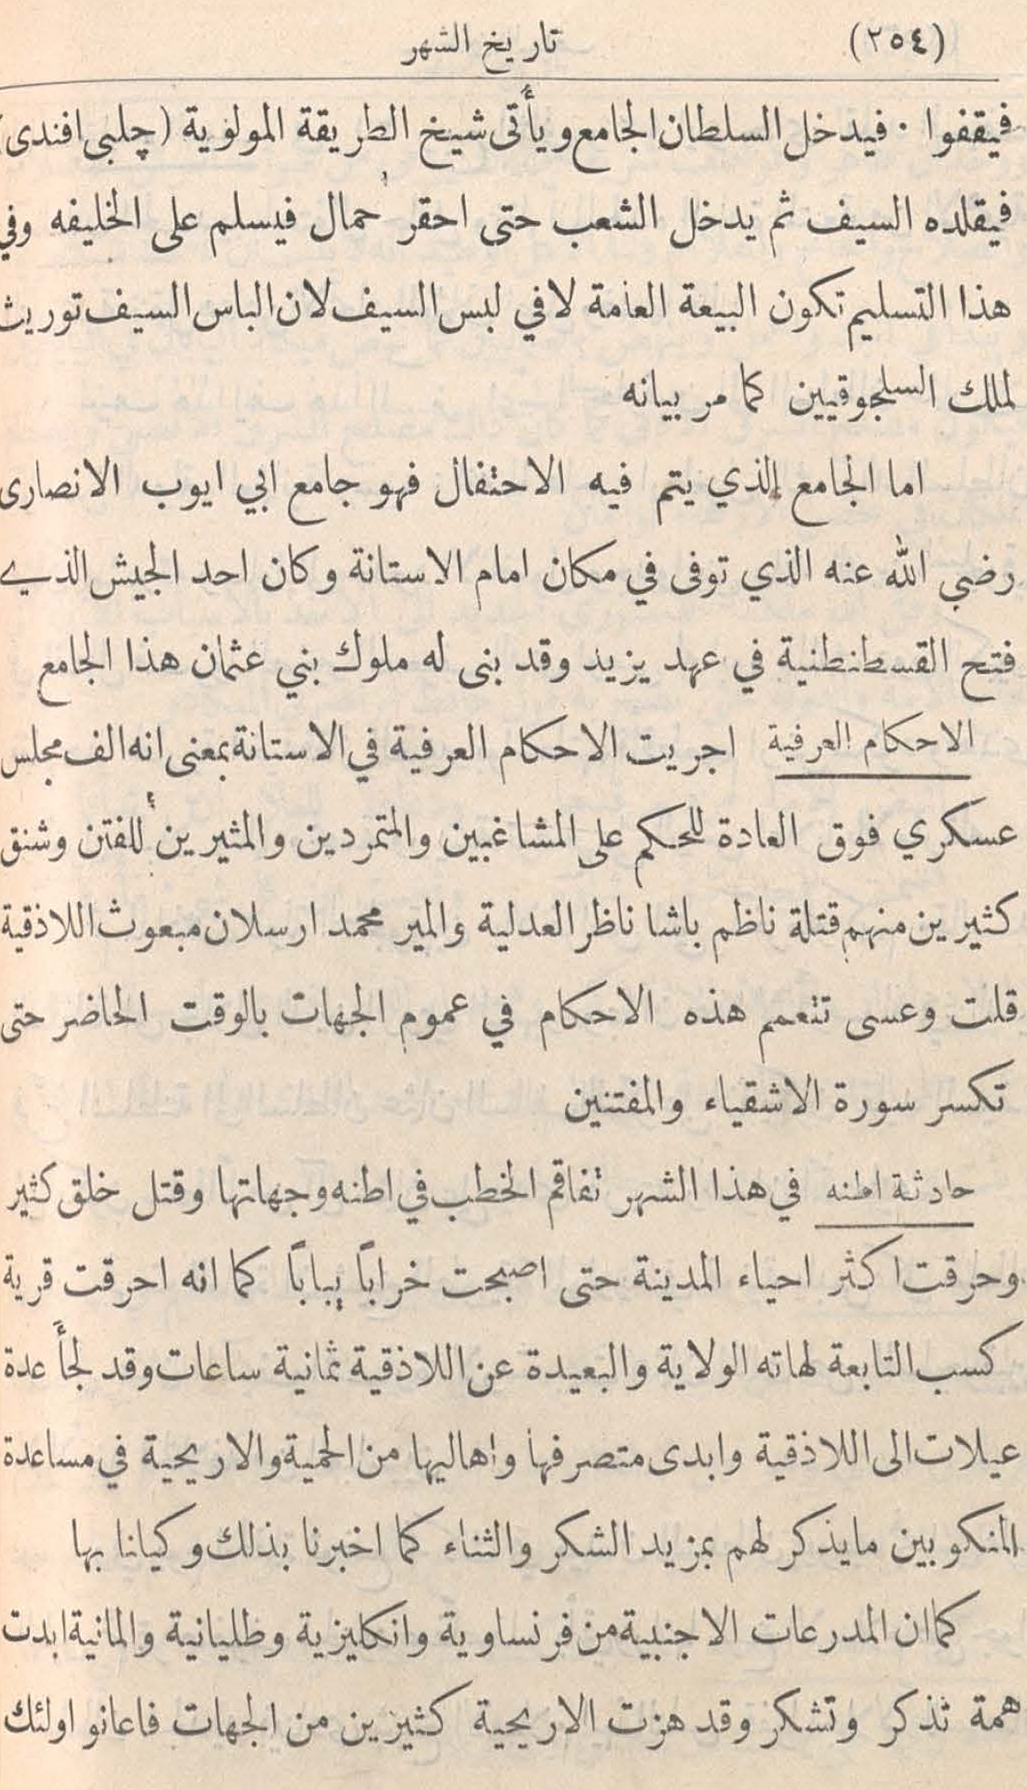 (٢٥٤) تاريخ الشهر
فيقفوا · فيدخل السلطان الجامع ويأتى شيخ الطريقة المولوية (چلبى افندى)
فيقلده السيف ثم يدخل الشعب حتى احقر حمال فيسلم على الخليفه وفي
هذا التسليم تكون البيعة العامة لا في لبس السيف لان الباس السيف توريث
لملك السلجوقيين كما مر بيانه
اما الجامع الذي يتم فيه الاحتفال فهو جامع ابي ايوب الانصارى
رضي الله عنه الذي توفى في مكان امام الاستانة وكان احد الجيش الذي
فتح القسطنطنية في عهد يزيد وقد بنى له ملوك بني عثمان هذا الجامع
الاحكام العرفية اجريت الاحكام العرفية في الاستانة بمعنى انه الف مجلس
عسكري فوق العادة للحكم على المشاغبين والمتمردين والمثيرين للفتن وشنق
كثيرين منهم قتلة ناظم باشا ناظر العدلية والمير محمد ارسلان مبعوث اللاذقية
قلت وعسى تتعمم هذه الاحكام في عموم الجهات بالوقت الحاضر حتى
تكسر سورة الاشقياء والمفتنين
حادثة اطنه في هذا الشهر تفاقم الخطب في اطنه وجهاتها وقتل خلق كثير
وحرقت اكثر احياء المدينة حتى اصبحت خراباً يباباً كما انه احرقت قرية
كسب التابعة لهاته الولاية والبعيدة عن اللاذقية ثمانية ساعات وقد لجأ عدة
عيلات الى اللاذقية وابدى متصرفها واهاليها من الحمية والاريحية في مساعدة
المنكوبين مايذكر لهم بمزيد الشكر والثناء كما اخبرنا بذلك وكيانا بها
كما ان المدرعات الاجنبية من فرنساوية وانكليزية وطليانية والمانية ابدت
همة تذكر وتشكر وقد هزت الاريحية كثيرين من الجهات فاعانو اولئك